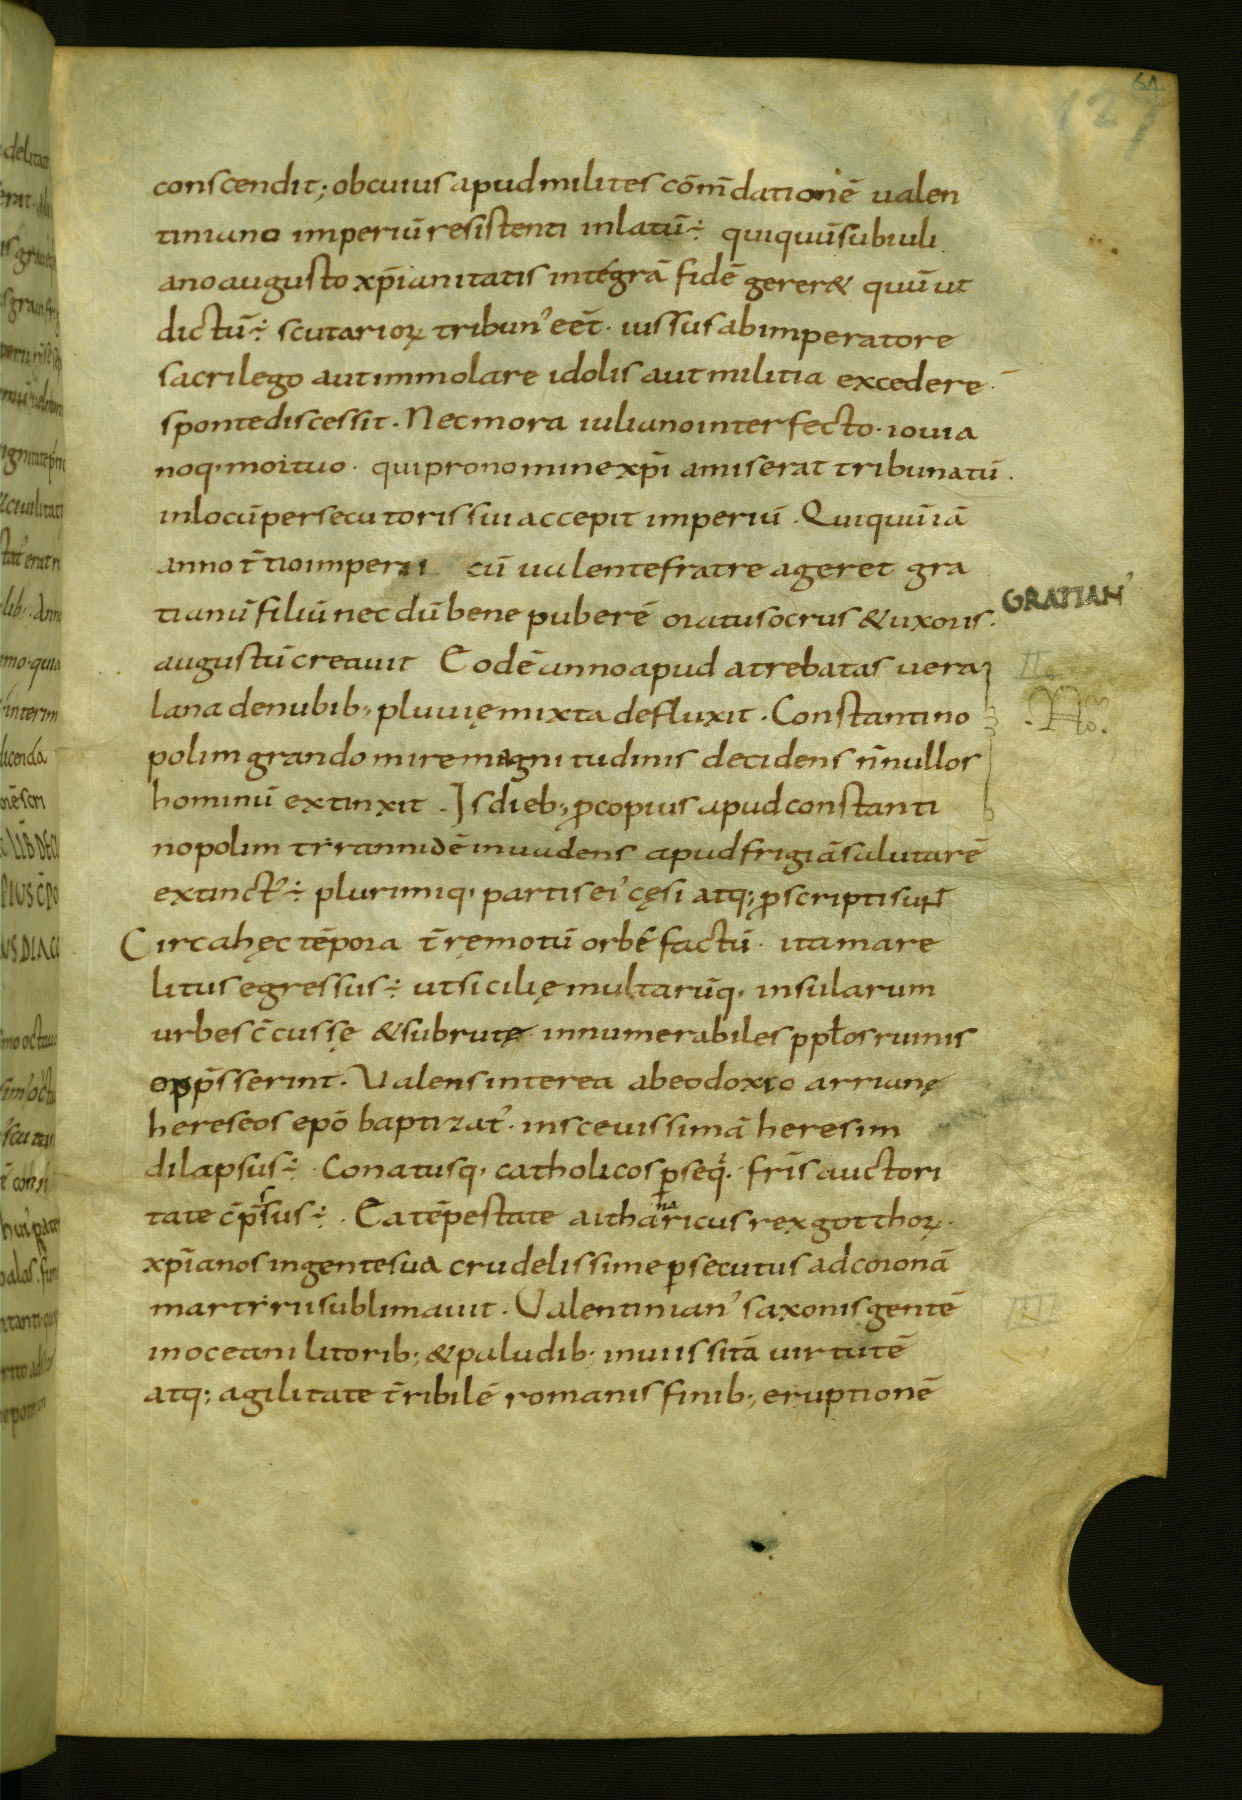 64
127
conscendit; ob cuius apud milites cōm̄dationē ualen
tiniano imperiū resistenti inlatū ÷ qui quū sub iuli
ano augusto xp̄ianitatis intégrā fidē gerer& quū ut
dictū ÷ scutarioꝝ tribun᾽ eēt · iussus ab imperatore
sacrilego aut immolare idolis aut militia excedere ·
sponte discessit . Nec mora iuliano interfecto · iouia
noq· moituo · qui pro nomine xp̄i amiserat tribunatū .
in locū persecutoris sui accepit imperiū . Qui quū iā
anno t̄tio imperii cū ualente fratre ageret gra
tianū filiū nec dū bene puberē oratu socrus & uxoris . GRATIAN᾽
augustū creauit Eodē anno apud atrebatas uera
lana de nubib; pluuię mixta defluxit . Constantino
polim grando mire magnitudinis decidens n̄nullos
hominū extinxit . Isdieb; ꝓcopius apud constanti
nopolim tyrannidē inuadens apud frigiā salutarē
extinct᾽ ÷ plurimiq· partis ei᾽ cęsi atq; ꝓscripti suꝶ
Circa hęc tēpora t̄ręmotū orbē factū · ita mare
litus egressus ÷ ut sicilię multarūq· insularum
urbes c̄cussę & subrutę innumerabiles ppłos ruinis
opp̄sserint . Valens interea ab eodoxio arrianę
hereseos epō baptizat᾽ · in scevissimā heresim
dilapsus ÷ · Conatusq· catholicos ꝑseq̇ . fr̄is auctori
tate c̄p̄ssus ÷ . Ea tēpestate aithanaricus rex gotthoꝝ .
xp̄ianos in gente sua crudelissime ꝑsecutus ad coronā
martyrii sublimauit . Valentinian᾽ saxonis gentē
in oceani litorib; & paludib; inuiis sitā uirtutē
atq; agilitate t̄ribilē romanis finib; eruptionē